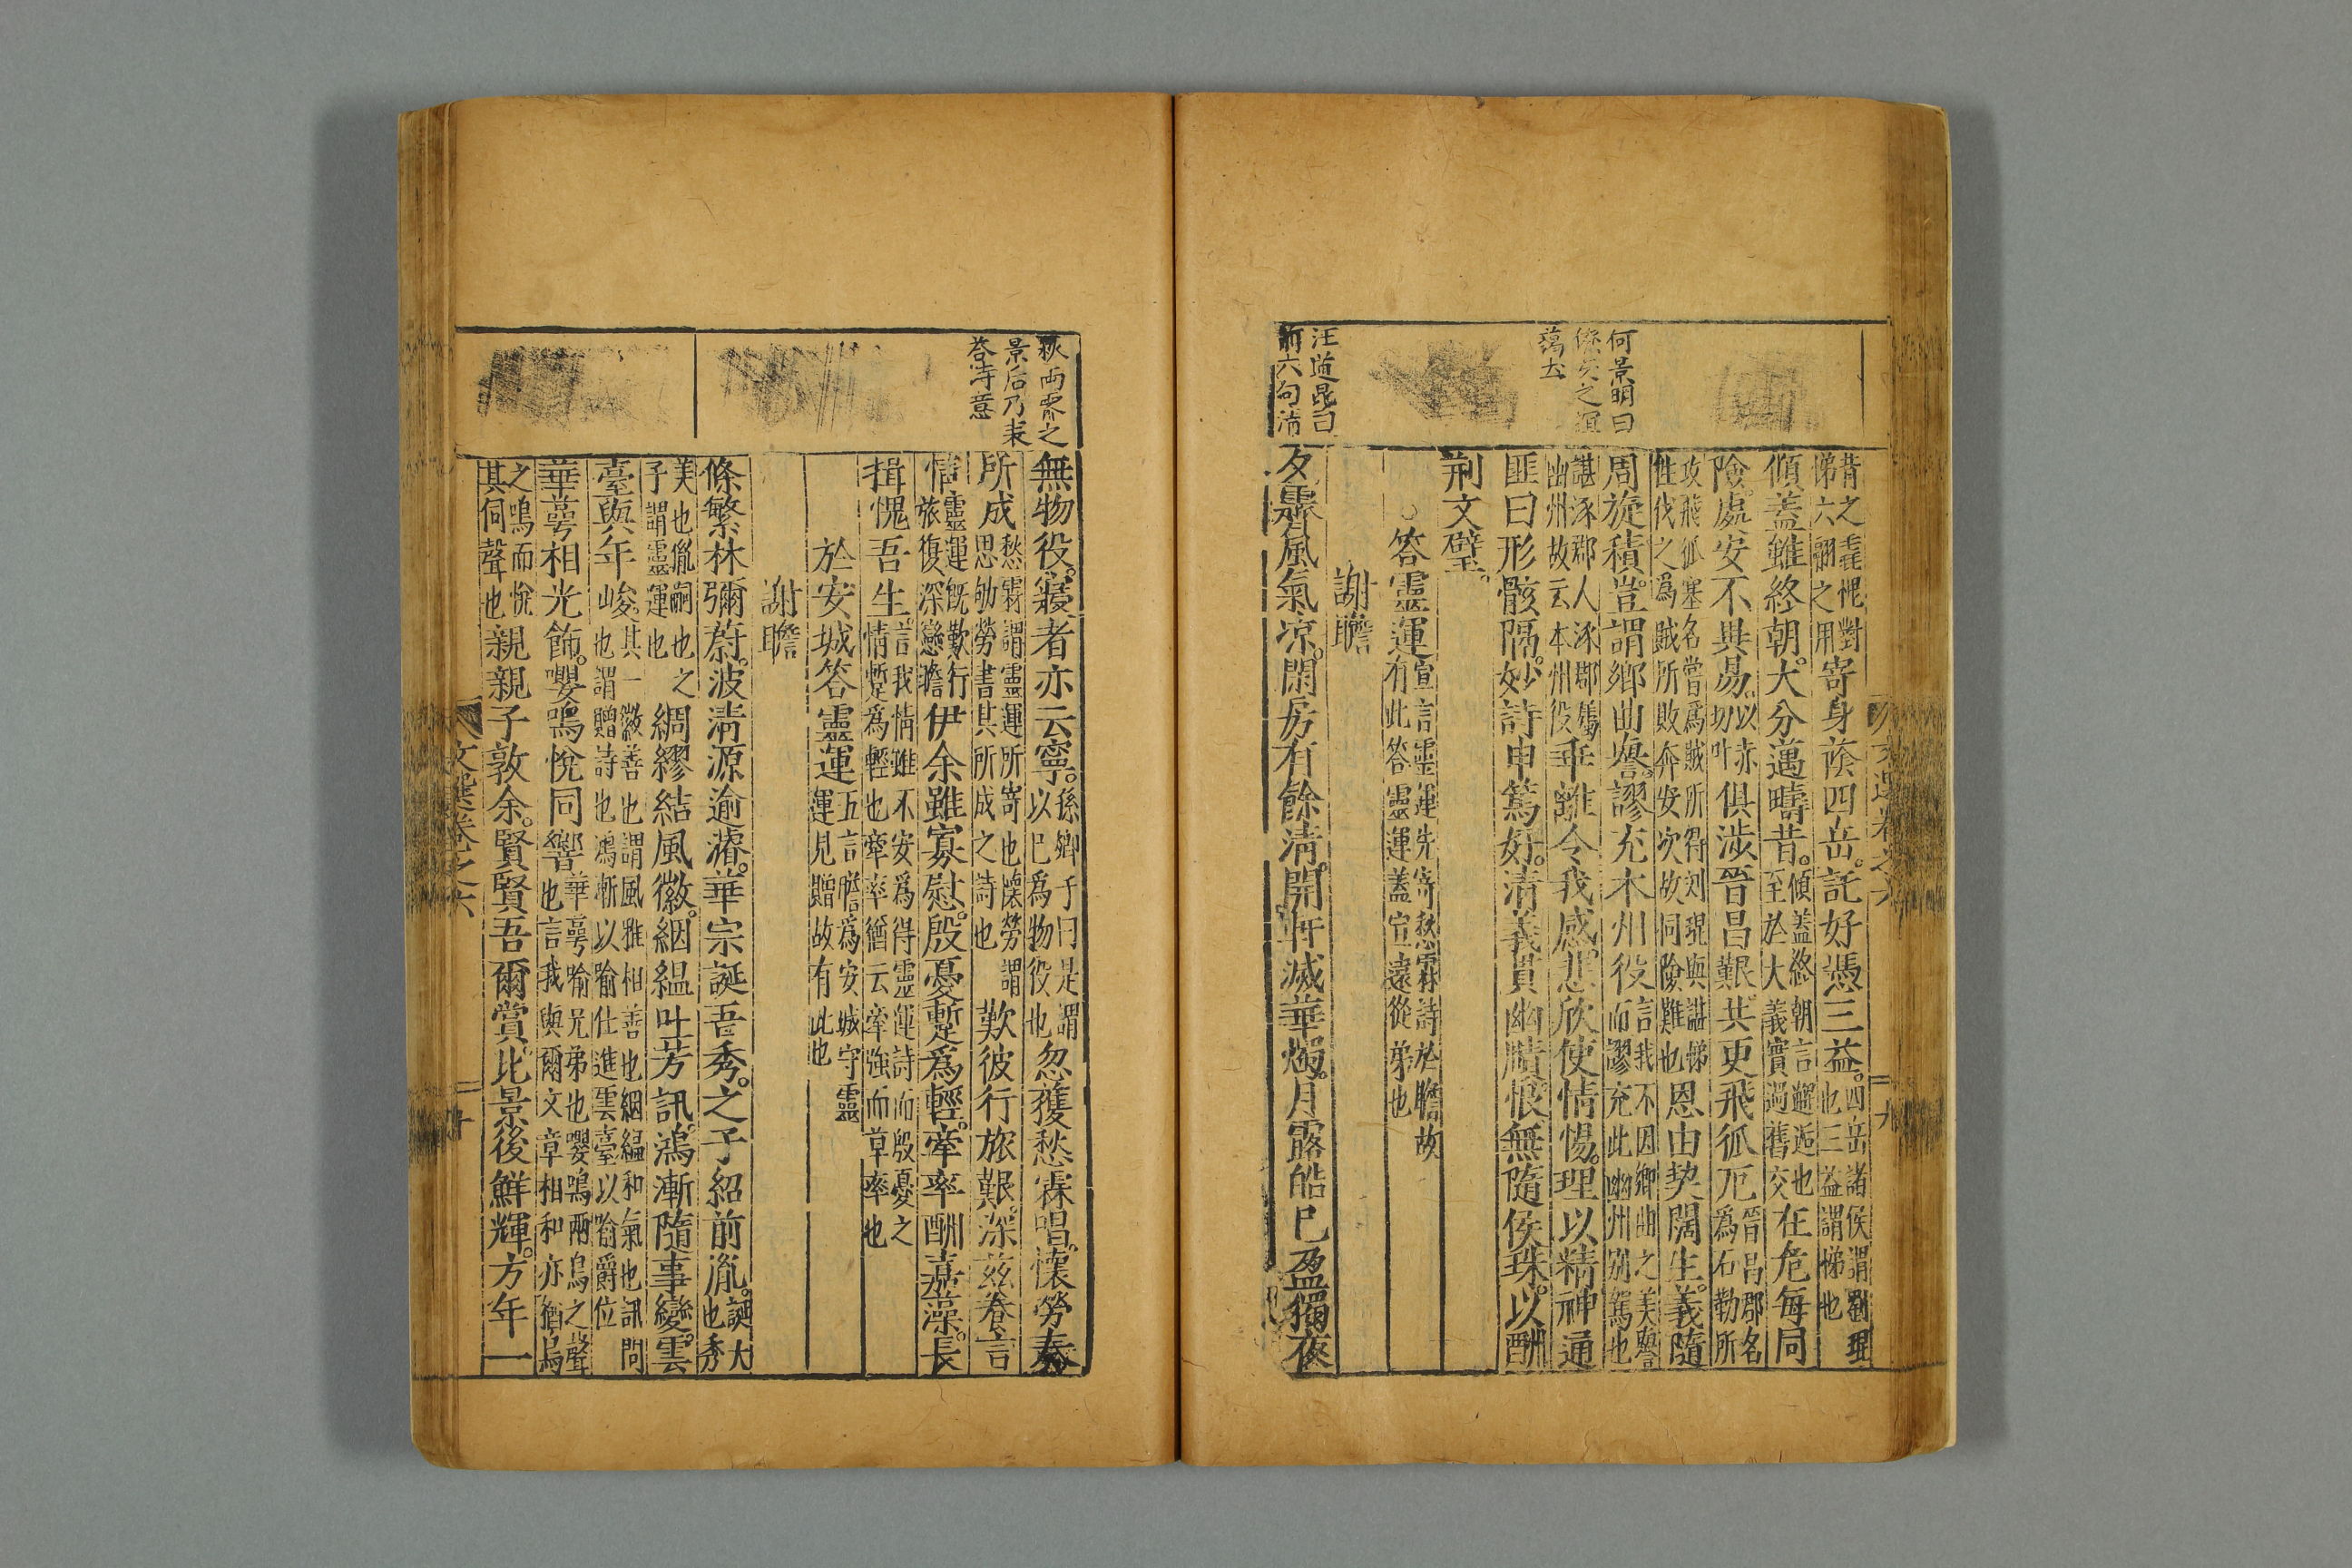 何景明曰
藹去
汪道昆曰
前六句清
昔之毳幌對
悌六翮之用
寄身蔭四岳。託好憑三益。
四岳諸侯謂劉琨
也三益謂悌也
傾蓋雖終朝。大分邁疇昔。
傾蓋終朝言邂逅也
至於大義實過舊交
在危每同
險。處安不異易。
以赤
切叶
俱涉晉昌艱。共更飛狐厄
晉昌郡名
為石勒所
攻飛狐塞名嘗爲賊所得刘琨與諶悌
性伐之爲賊所敗奔安次故同險難也
恩由契闊生。義隨
周旋積。豈謂鄉曲譽。謬充本州役
言我不因鄉曲之美譽
而謬充此幽州別駕也
諶涿郡人涿郡屬
幽州故云本州役
乖離令我感悲欣使情惕。理以精神通
匪曰形骸隔。妙詩申篤好。清義貫幽賾恨無隨侯珠。以酬
荆文璧。
答靈運
宣言靈運先寄愁霖詩於瞻故
有此答靈運蓋宣遠從弟也
謝瞻
夕霽風氣凉。閑房有餘清。開軒滅華燭。月露皓已盈獨夜
文選卷之六
二十九
秋雨霽之
景后乃表
答寺意
無物役。寢者亦云寧。
孫卿子曰是謂
以已爲物役也
忽獲愁霖唱。懷勞奏
所成
愁霖謂靈運所寄也懷勞謂
思劬勞書其所成之詩也
歎彼行旅艱。深茲眷言
情
靈運旣歎行
旅復深戀瞻
伊余雖寡慰。殷憂蹔爲輕。牽率酬嘉藻。長
揖愧吾生
言我情雖不安爲得靈運詩而殷憂之
情蹔爲輕也牽率猶云牽強而草率也
於安城答靈運
五言瞻爲安城守靈
運見贈故有此也
謝瞻
條繁林彌蔚。波清源逾濬。華宗誕吾秀。之子紹前胤。
誕大
也秀
美也胤嗣也之
子謂靈運也
綢繆結風徽。絪縕吐芳訊。鴻漸隨事變。雲
臺與年峻。
其一徽善也謂風雅相善也絪縕和氣也訊問
也謂贈詩也鴻漸以喻仕進雲臺以喻爵位
華蕚相光飾。嚶鳴悅同響
華蕚喻兄弟也嚶鳴兩鳥之聲
也言我與爾文章相和亦猶鳥
之鳴而悅
其伺聲也
親親子敦余。賢賢吾爾賞。比景後鮮輝。方年一
文選卷之六